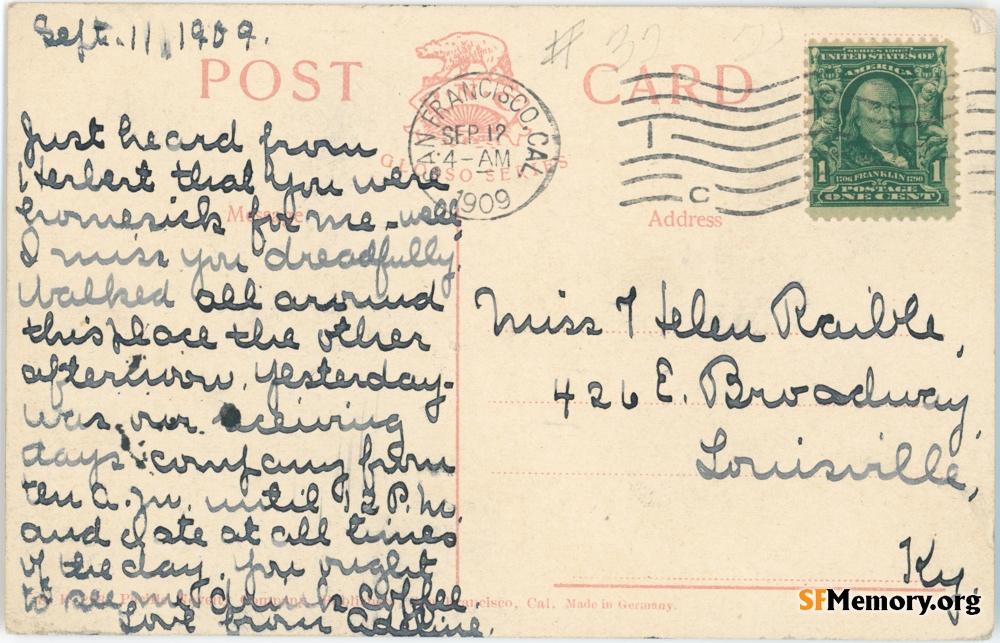 Sept. 11, 1909.
POST CARD
# 32
SAN FRANCISCO, CAL.
SEP 12
4-AM
1909
1
C
SERIES 1902
UNITED STATES OF
AMERICA
1 1
1706 FRANKLIN 1790
POSTAGE
ONE CENT
SERIES
Message
Address
Just heard from
Herbert that you were
homesick for me - well
I miss you dreadfully.
Walked all around
this place the other
afternoon. Yesterday
was our receiving
days company from
ten a.m. until 12 P.M.
and I ate at all times
of the day. You ought
to see me drink coffee
Love from Adeline.
Miss Helen Raible,
426 E. Broadway,
Louisville,
Ky.
Cal. Made in Germany.
SFMemory.org